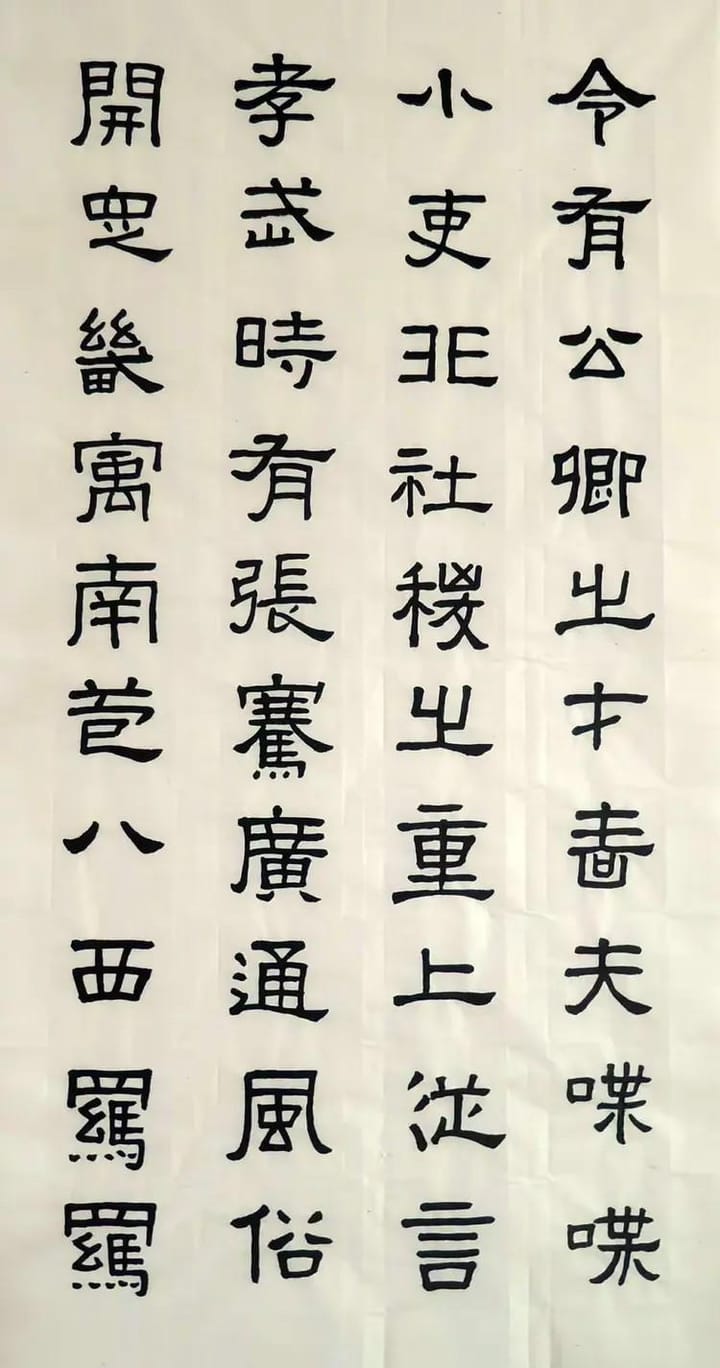 令有公卿之才嗇夫喋喋
小吏非社稷之重上從言
孝武時有張騫廣通風俗
開定畿寓南苞八西羈羈